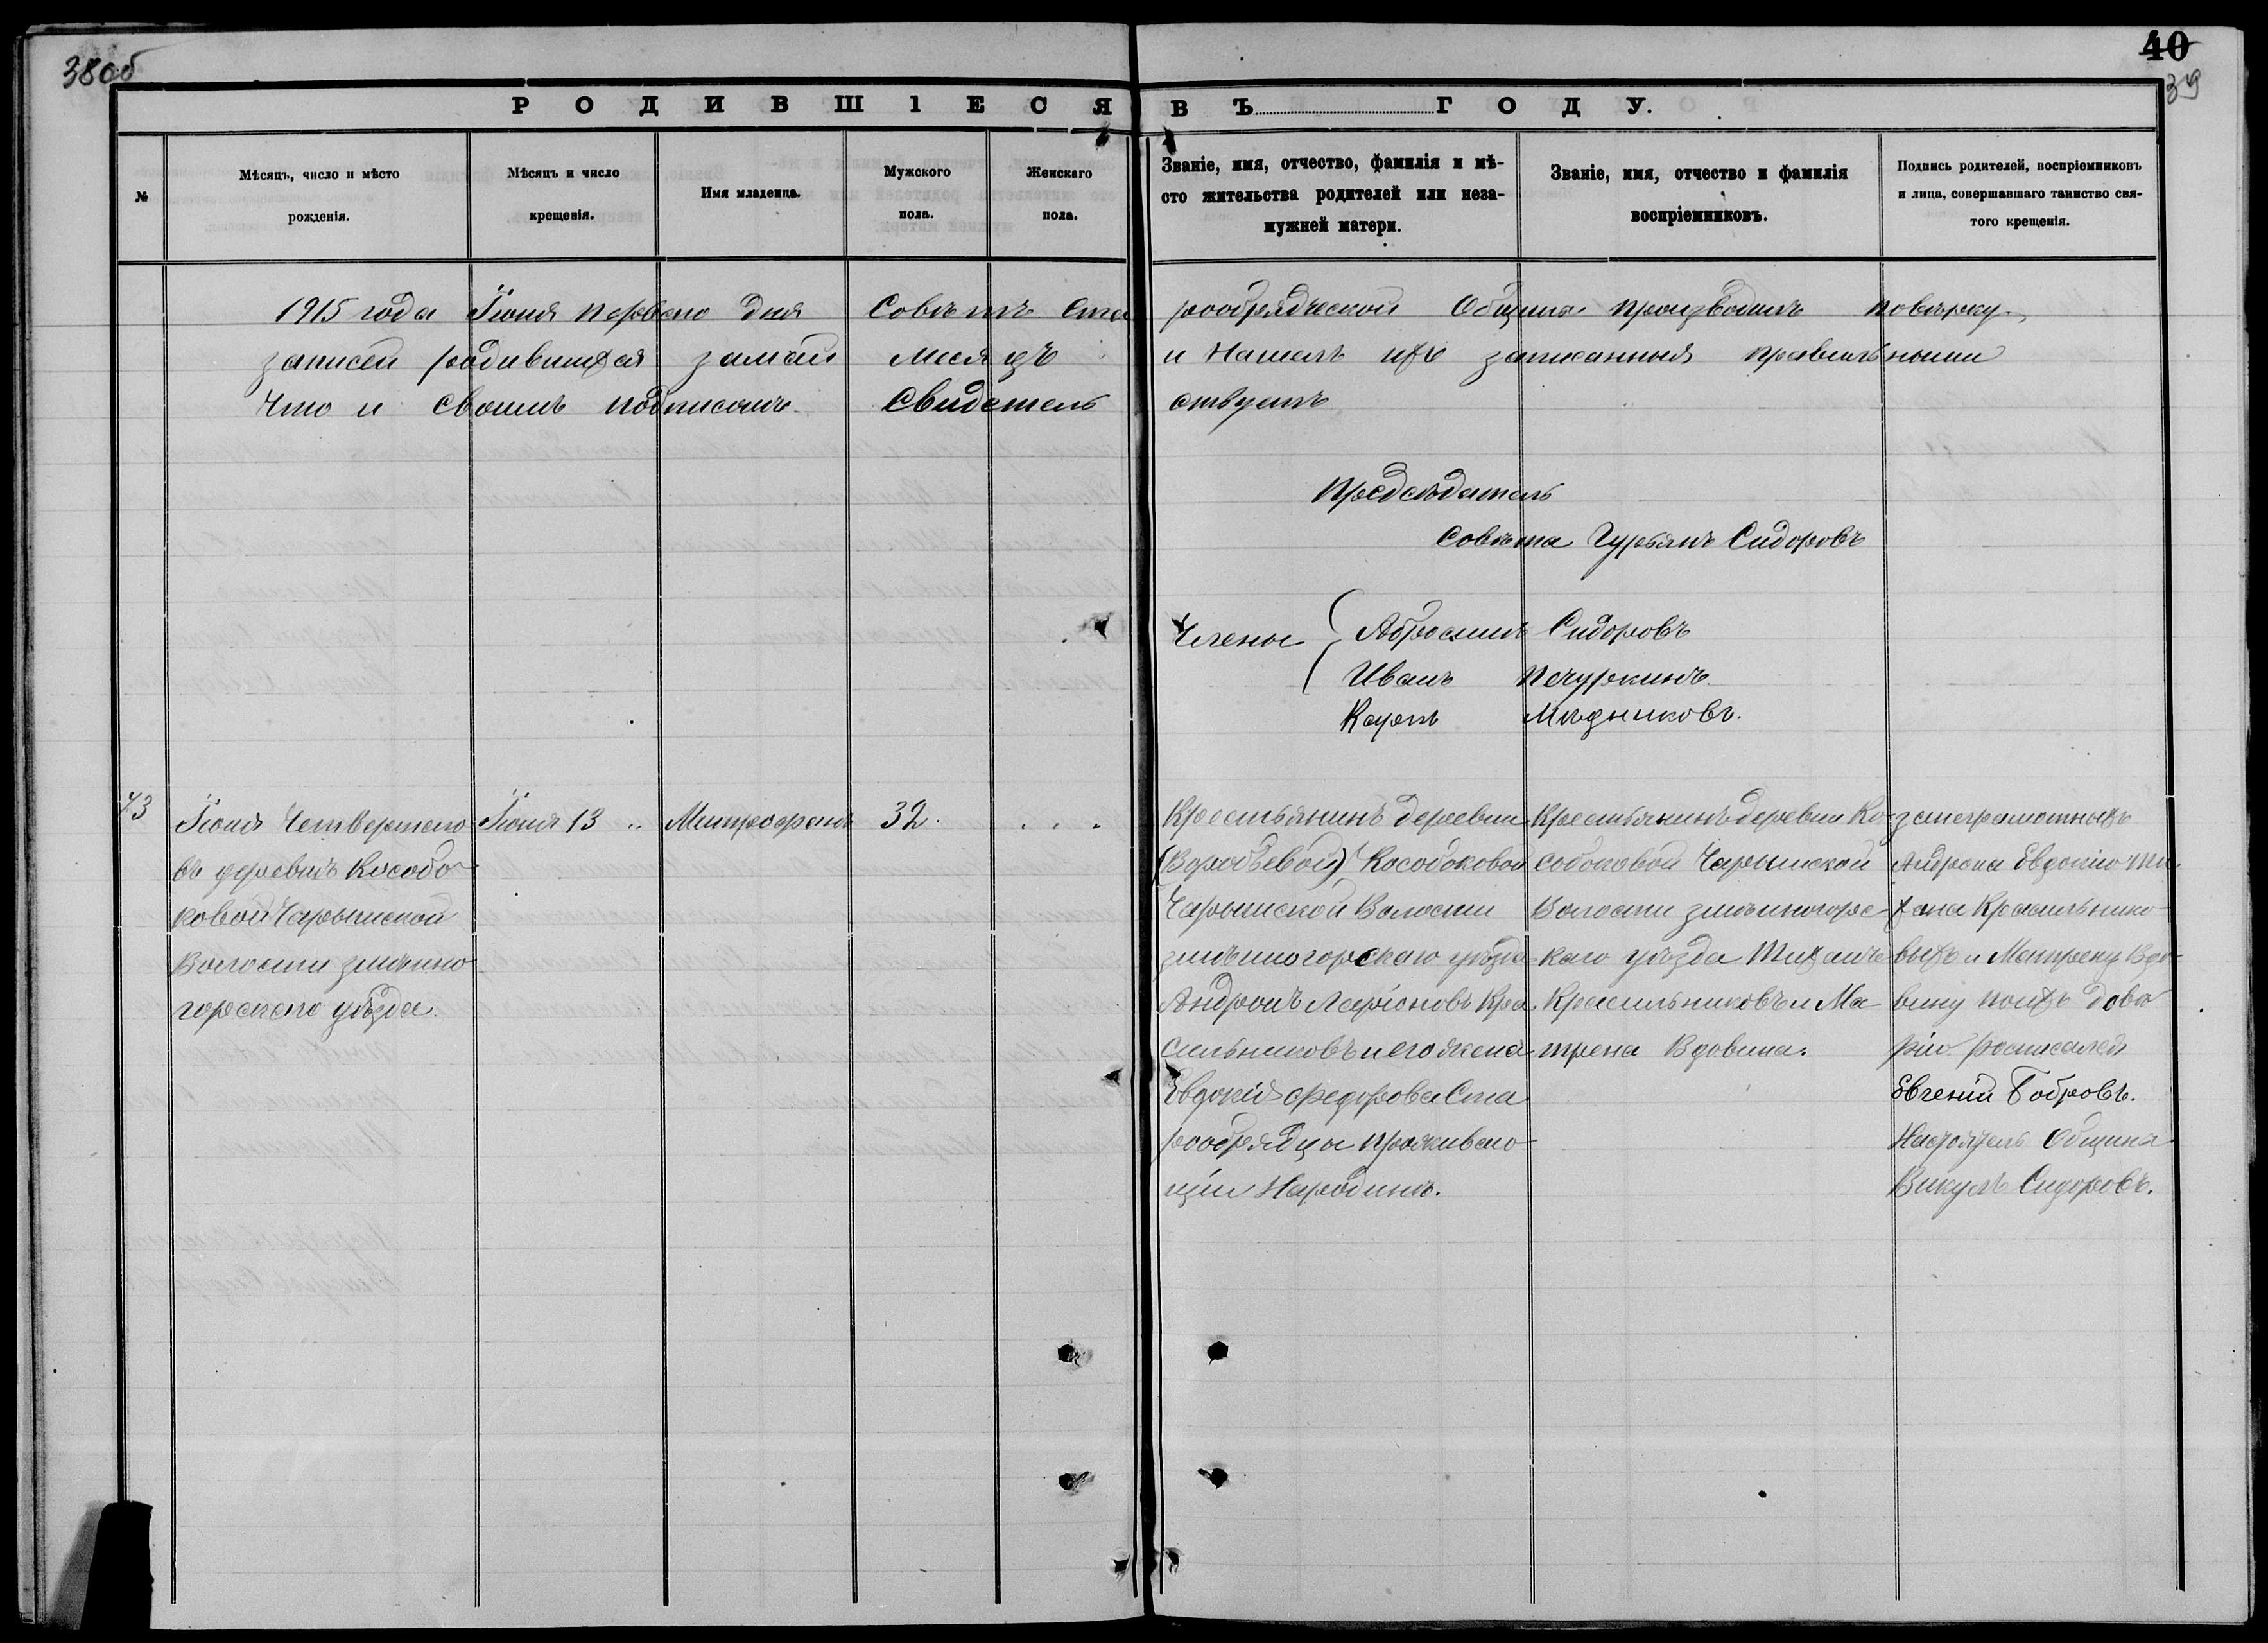 38об
40
39
РОДИВШІЕСЯ ВЪ ГОДУ.
№
Мѣсяцъ, число и мѣсто
рожденія.
Мѣсяцъ и число
крещенія.
Имя младенца.
Мужского
пола.
Женскаго
пола.
Званіе, имя, отчество, фамилія и мѣ-
сто жительства родителей или неза-
мужней матери.
Званіе, имя, отчество и фамилія
воспріемниковъ.
Подпись родителей, воспріемниковъ
и лица, совершавшаго таинство свя-
того крещенія.
1915 года Іюня перваго дня Совѣтъ Ста рообрядческой Общины производилъ повѣрку
записей родившихся замай месяцъ и Нашелъ ихъ записанныя правильными
Что и своимъ подписомъ Свидѣтель ствуетъ
Предсѣдатель
Совѣта Гурьянъ Сидоровъ
Члены Абросимъ Сидоровъ
Иванъ Печуркинъ
Карпъ Мѣдниковъ.
73
Іюня Четвертаго
въ деревнѣ Кособо
ковой Чарышской
Волости змѣино
горскаго уѣзда.
Іюня 13
Митрофанъ
32.
Крестьянинъ деревни
(Воробьевой) Кособоковой
Чарышской Волости
змѣиногорскаго уѣзда
Андронъ Ларіоновъ Кра
сильниковъ и его жена
Евдокія Федорова Ста
рообрядцы проживаю
щіи Народинѣ.
Крестьянинъ деревни Ко-
собоковой Чарышской
Волости змѣиногорс-
каго уѣзда Тиханъ
Красильниковъ и Ма-
трена Вдовина.
занеграмотныхъ
Андрона Евдокію Ти
хана Красильнико
выхъ и Матрену Вдо-
вину поихъ довѣ
рію росписался
Евгеній Бобровъ.
Настоятель Общины
Викулъ Сидоровъ.